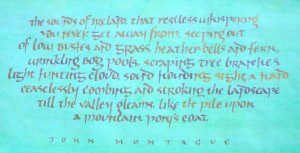 the sounds of Ireland, that restless whispering
you never get away from, seeping out
of low bushes and grass, heatherbells and fern,
wrinkling bog pools, scraping tree branches
light hunting cloud, sound hounding sight a hand
ceaselessly combing and stroking the landscape
till the valley gleams, like the pile upon
a mountain pony's coat.
JOHN MONTAGUE